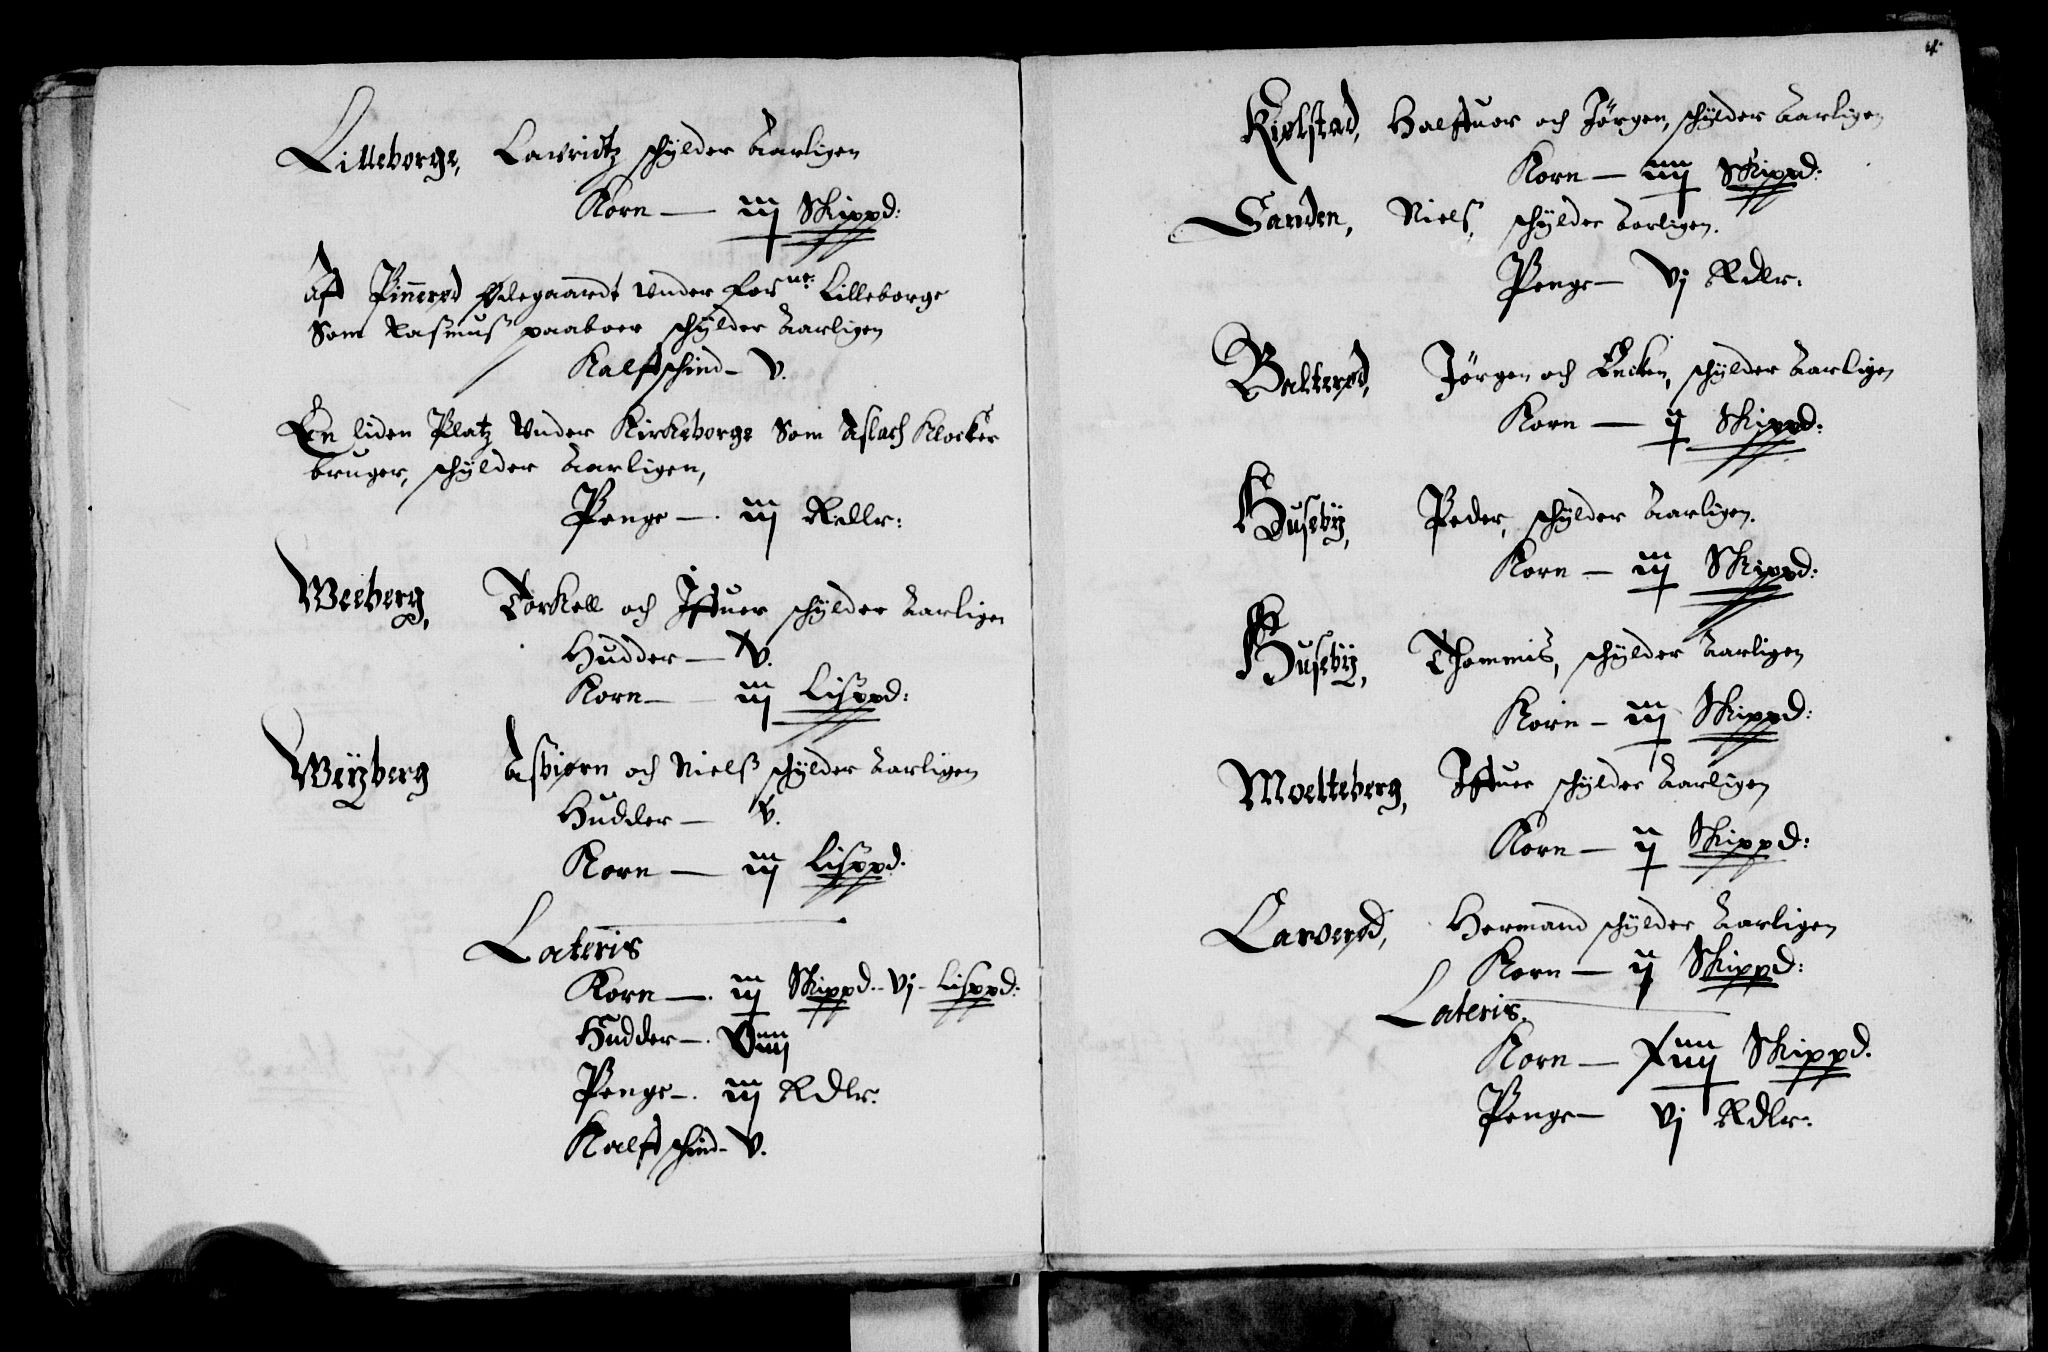 Lilleborge, Lavridtz schÿlder Aarligen
Korn — iij Skippd:
Aff Pinnerød Ødegaardt Vnder forne: Lilleborge
Som Rasmuß paaboer schÿlder Aarligen
Kalfschind – V.
En liden Platz Vnder Kirkeborge Som Aslach Klocker
bruger, schÿlder Aarligen,
Penge — iij Rdlr:
Weeberg, Torkell och Iffuer schÿlder Aarligen
Hudder — V.
Korn — iij Lißpd:
Weÿberg Asbiørn och Nielß schÿlder Aarligen
Hudder — V.
Korn — iij Lißpd.
Lateris
Korn — iij Skippd. – Vj – Lißpd:
Hudder —
Penge — iij Rdlr.
Kalfschind – V.
4
Kiølstad, Halffuor och Jørgen, schÿlder Aarligen
Korn — iiij Skippd:
Sanden, Nielß, schÿlder Aarligen.
Penge — Vj Rdlr:
Balterød, Jørgen och schÿlder Aarligen
Korn — ij Skippd:
Huseby, Peder, schÿlder Aarligen.
Korn — iij Skippd:
Huseby, Thommis, schÿlder Aarligen
Korn – iij Skippd:
Moelteberg, Iffuer schÿlder Aarligen
Korn — ij Skippd:
Larverød, Hermand schÿlder Aarligen
Korn — ij Skippd:
Lateris.
Korn — Skippd.
Penge — Vj Rdlr: